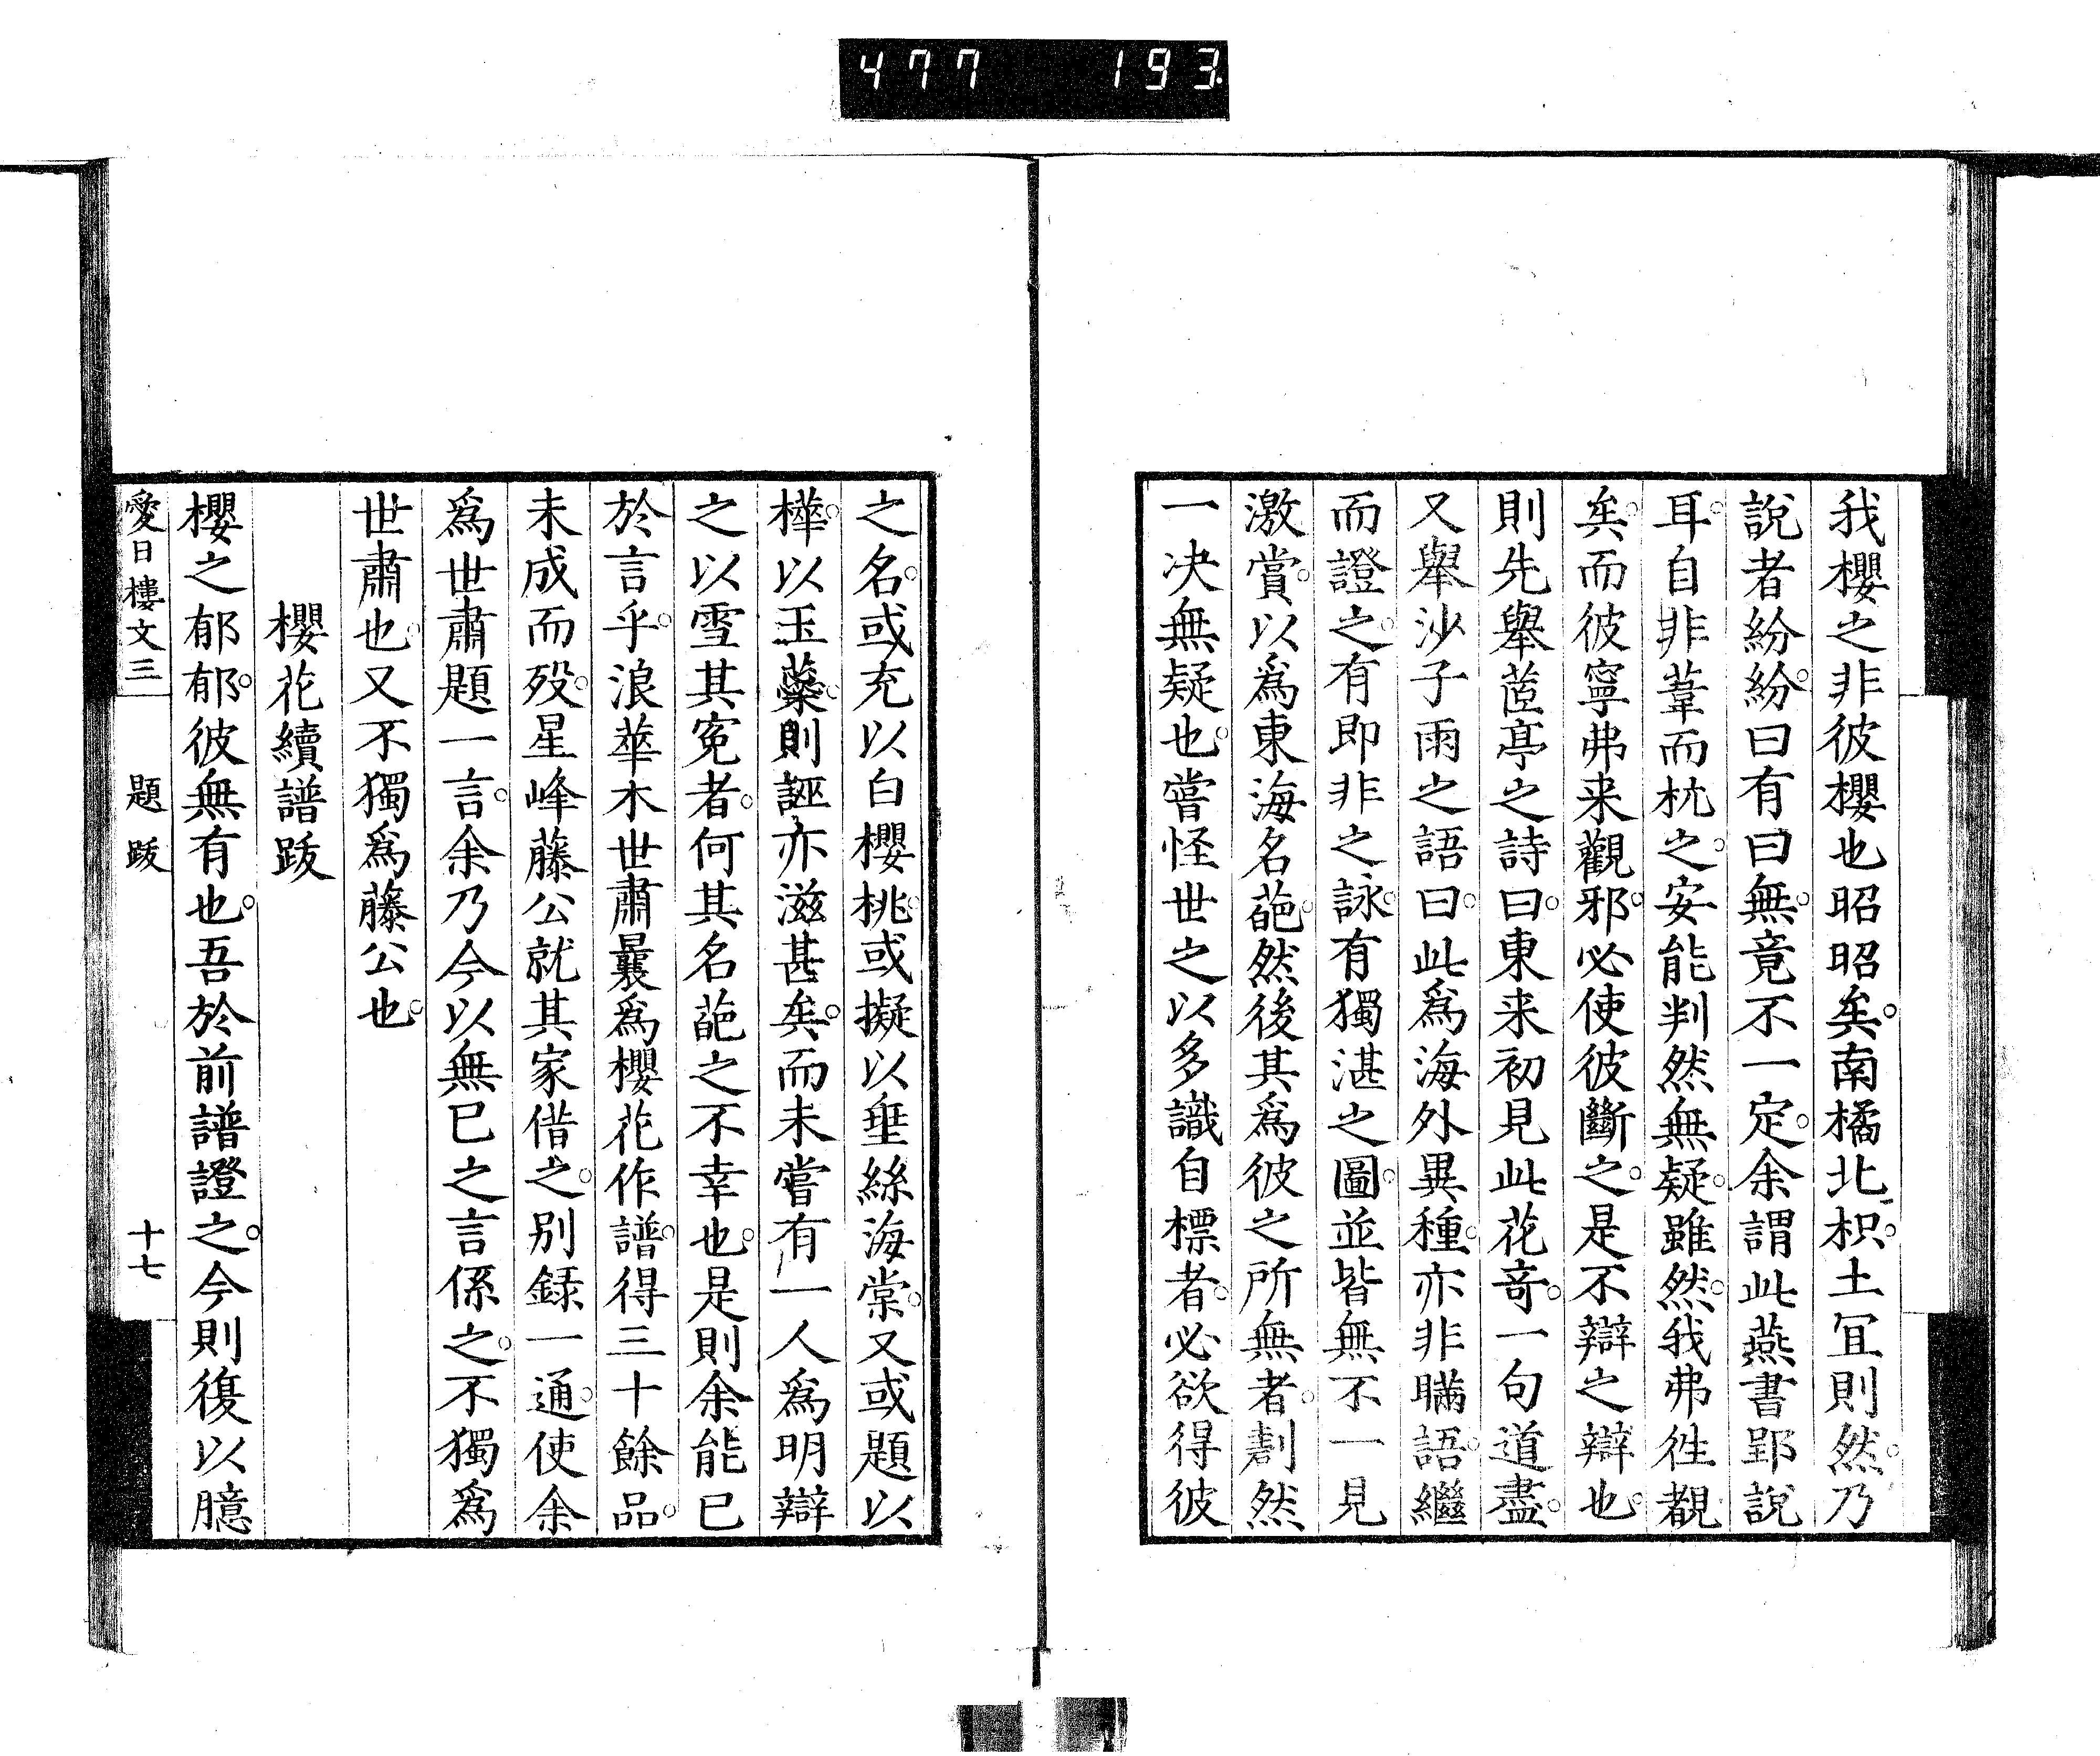 477 193
我櫻之非彼櫻也昭昭矣。南橘北枳。土冝則然。乃
說者紛紛。曰有曰無。竟不一定。余謂此燕書郢說
耳。自非葦而杭之。安能判然無疑。雖然。我弗徃覩
矣。而彼寧弗来觀邪。必使彼斷之。是不辯之辯也。
則先舉𦮼亭之詩曰。東来初見此花竒。一句道盡。
又舉沙子雨之語曰。此爲海外異種。亦非瞞語。繼
而證之。有即非之詠。有獨湛之圖。並皆無不一見
激賞。以爲東海名葩。然後其爲彼之所無者。劃然
一决無疑也。嘗怪世之以多識自標者。必欲得彼
之名。或充以白櫻桃。或擬以垂絲海棠。又或題以
樺。以玉蘂。則誣亦滋甚矣。而未嘗有一人爲明辯
之以雪其寃者。何其名葩之不幸也。是則余能已
於言乎。浪華木世肅曩爲櫻花作譜。得三十餘品。
未成而歿。星峰藤公就其家借之。別録一通。使余
爲世肅題一言。余乃今以無已之言係之。不獨爲
世肅也。又不獨爲藤公也。
櫻花續譜跋
櫻之郁郁。彼無有也。吾於前譜證之。今則復以臆
愛日樓文三 題跋 十七